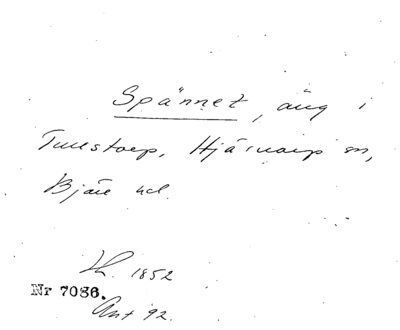 Spännet, äng i
Tuvstorp, Hjärnarp sn,
Bjäre hd.
1852
Nr 7086.
Ant 92.